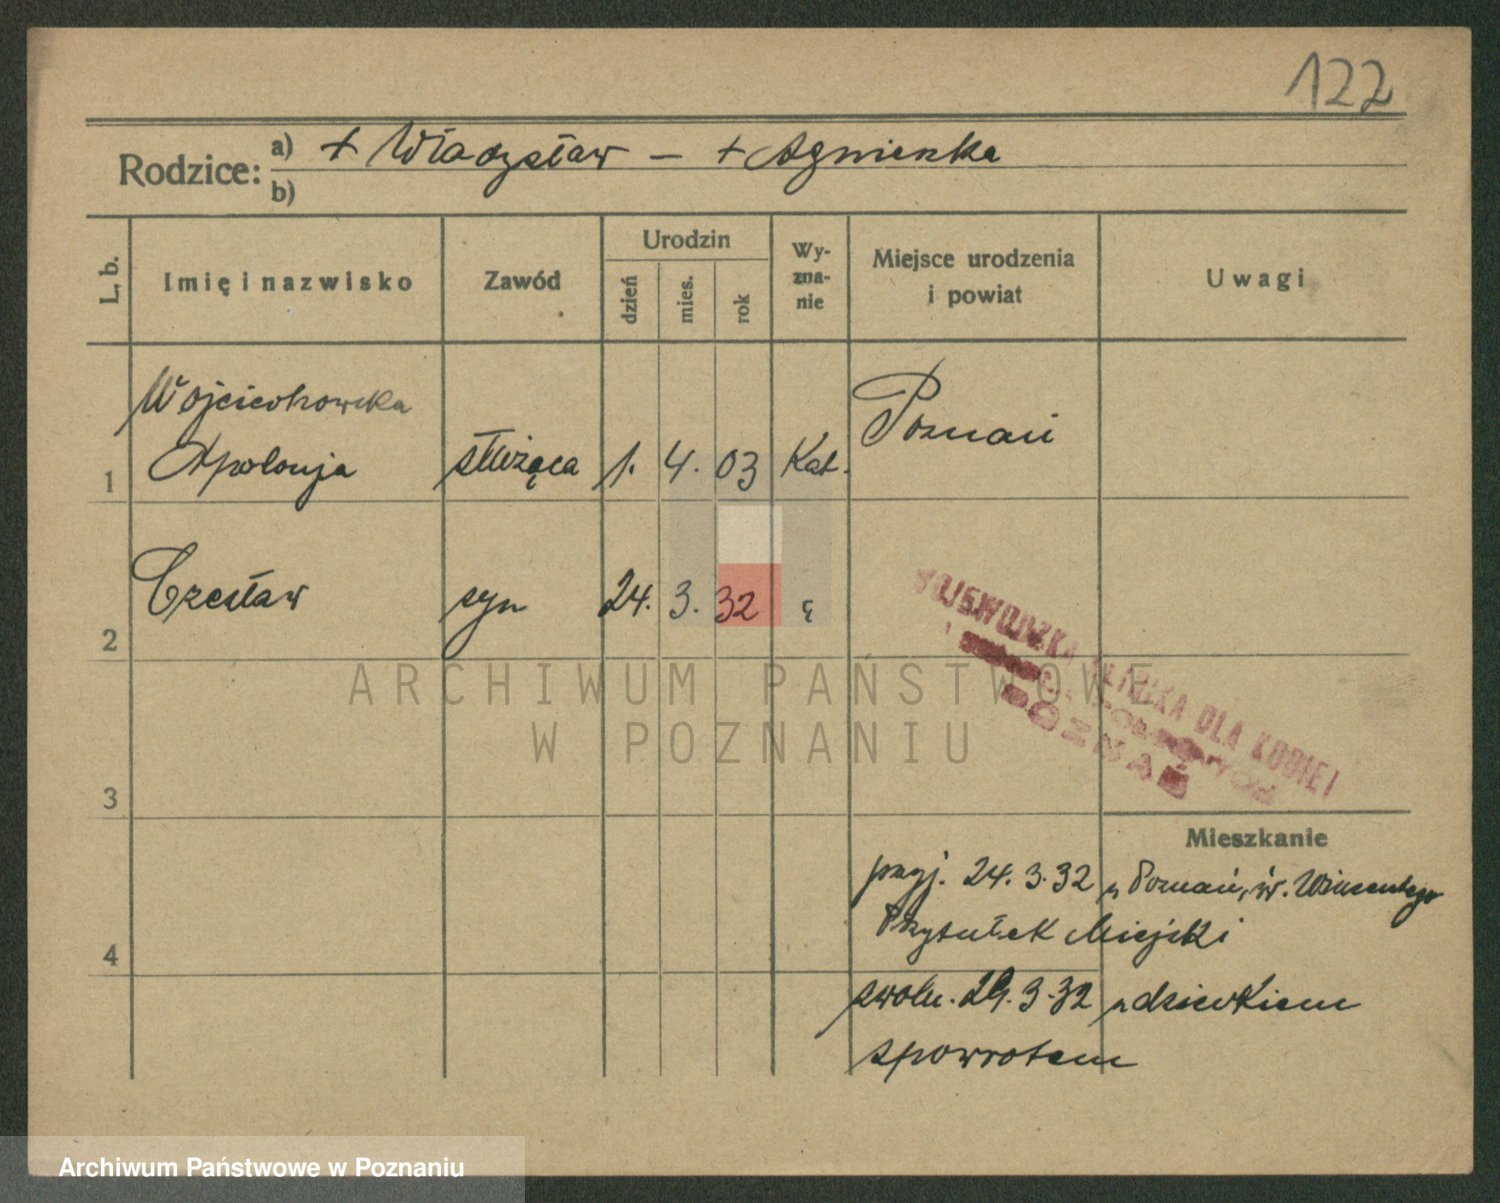 122
Rodzice: a) + Władysław – + Agnieszka
b)
L. b.
Imię i nazwisko
Zawód
Urodzin
dzień
mies.
rok
Wy-
zna-
nie
Miejsce urodzenia
i powiat
Uwagi
Wojciechowska
Apolonja
służąca
1. 4. 03
Kat.
Poznań
1
Czesław
syn
24. 3. 32
2
WOJEWÓDZKA KLINIKA DLA KOBIET
POZNAŃ
ARCHIWUM PAŃSTWOWE
W POZNANIU
3
Mieszkanie
przyj. 24. 3. 32 z Poznań, św. Wincentego
Przytułek Miejski
4
zwoln. 29. 3. 32 z dzieckiem
spowrotem
Archiwum Państwowe w Poznaniu